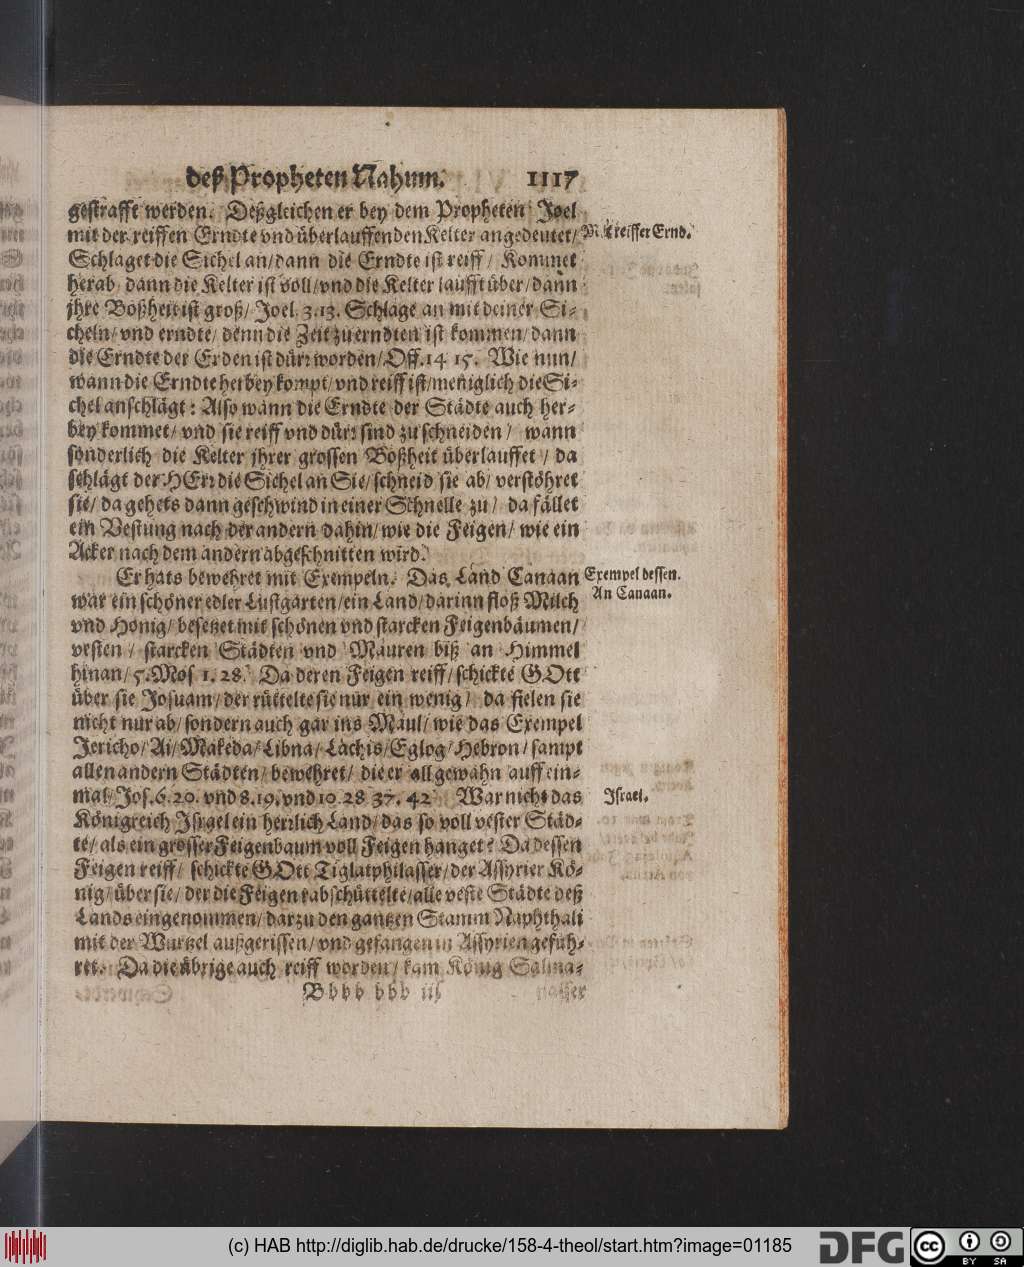 deß Propheten Nahum. 1117
gestrafft werden. Deßgleichen er bey dem Propheten Joel
mit der reiffen Erndte vnd überlauffenden Kelter angedeutet/
Mit reiffer Ernd.
Schlaget die Sichel an/ dann die Erndte ist reiff/ Kommet
herab/ dann die Kelter ist voll/ vnd die Kelter laufft über/ dann
jhre Boßheit ist groß/ Joel. 3. 13. Schlage an mit deiner Si-
cheln/ vnd erndte/ denn die Zeit zu erndten ist kommen/ dann
die Erndte der Erden ist dürr worden/ Off. 14 15. Wie nun/
wann die Erndte herbey kompt/ vnd reiff ist/ meniglich die Si-
chel anschlägt: Also wann die Erndte der Städte auch her-
bey kommet/ vnd sie reiff vnd dürr sind zu schneiden/ wann
sonderlich die Kelter jhrer grossen Boßheit überlauffet/ da
schlägt der HErr die Sichel an Sie/ schneid sie ab/ verstöhret
sie/ da gehets dann geschwind in einer Schnelle zu/ da fället
ein Vestung nach der andern dahin/ wie die Feigen/ wie ein
Acker nach dem andern abgeschnitten wird.
Er hats bewehret mit Exempeln. Das Land Canaan
Exempel dessen.
An Canaan.
war ein schöner edler Lustgarten/ ein Land/ darinn floß Milch
vnd Honig/ besetzet mit schönen vnd starcken Feigenbäumen/
vesten/ starcken Städten vnd Mauren biß an Himmel
hinan/ 5. Mos 1. 28. Da deren Feigen reiff/ schickte GOtt
über sie Josuam/ der rüttelte sie nur ein wenig/ da fielen sie
nicht nur ab/ sondern auch gar ins Maul/ wie das Exempel
Jericho/ Ai/ Makeda/ Libna/ Lachis/ Eglog/ Hebron/ sampt
allen andern Städten/ bewehret/ die er all gewahn auff ein-
mal/ Jos. 6. 20. vnd 8. 19. vnd 10. 28 37. 42 War nicht das
Israel.
Königreich Israel ein herrlich Land/ das so voll vester Städ-
te/ als ein grosser Feigenbaum voll Feigen hanget? Da dessen
Feigen reiff/ schickte GOtt Tiglatphilasser/ der Assyrier Kö-
nig/ über sie/ der die Feigen rabschüttelte/ alle veste Städte deß
Lands eingenommen/ darzu den gantzen Stamm Naphthali
mit der Wurtzel außgerissen/ vnd gefangen in Assyrien gefüh-
ret. Da die übrige auch reiff worden/ kam König Salma-
Bbbb bbb iij
nasser
(c) HAB http://diglib.hab.de/drucke/158-4-theol/start.htm?image=01185
DFG
cc
BY SA